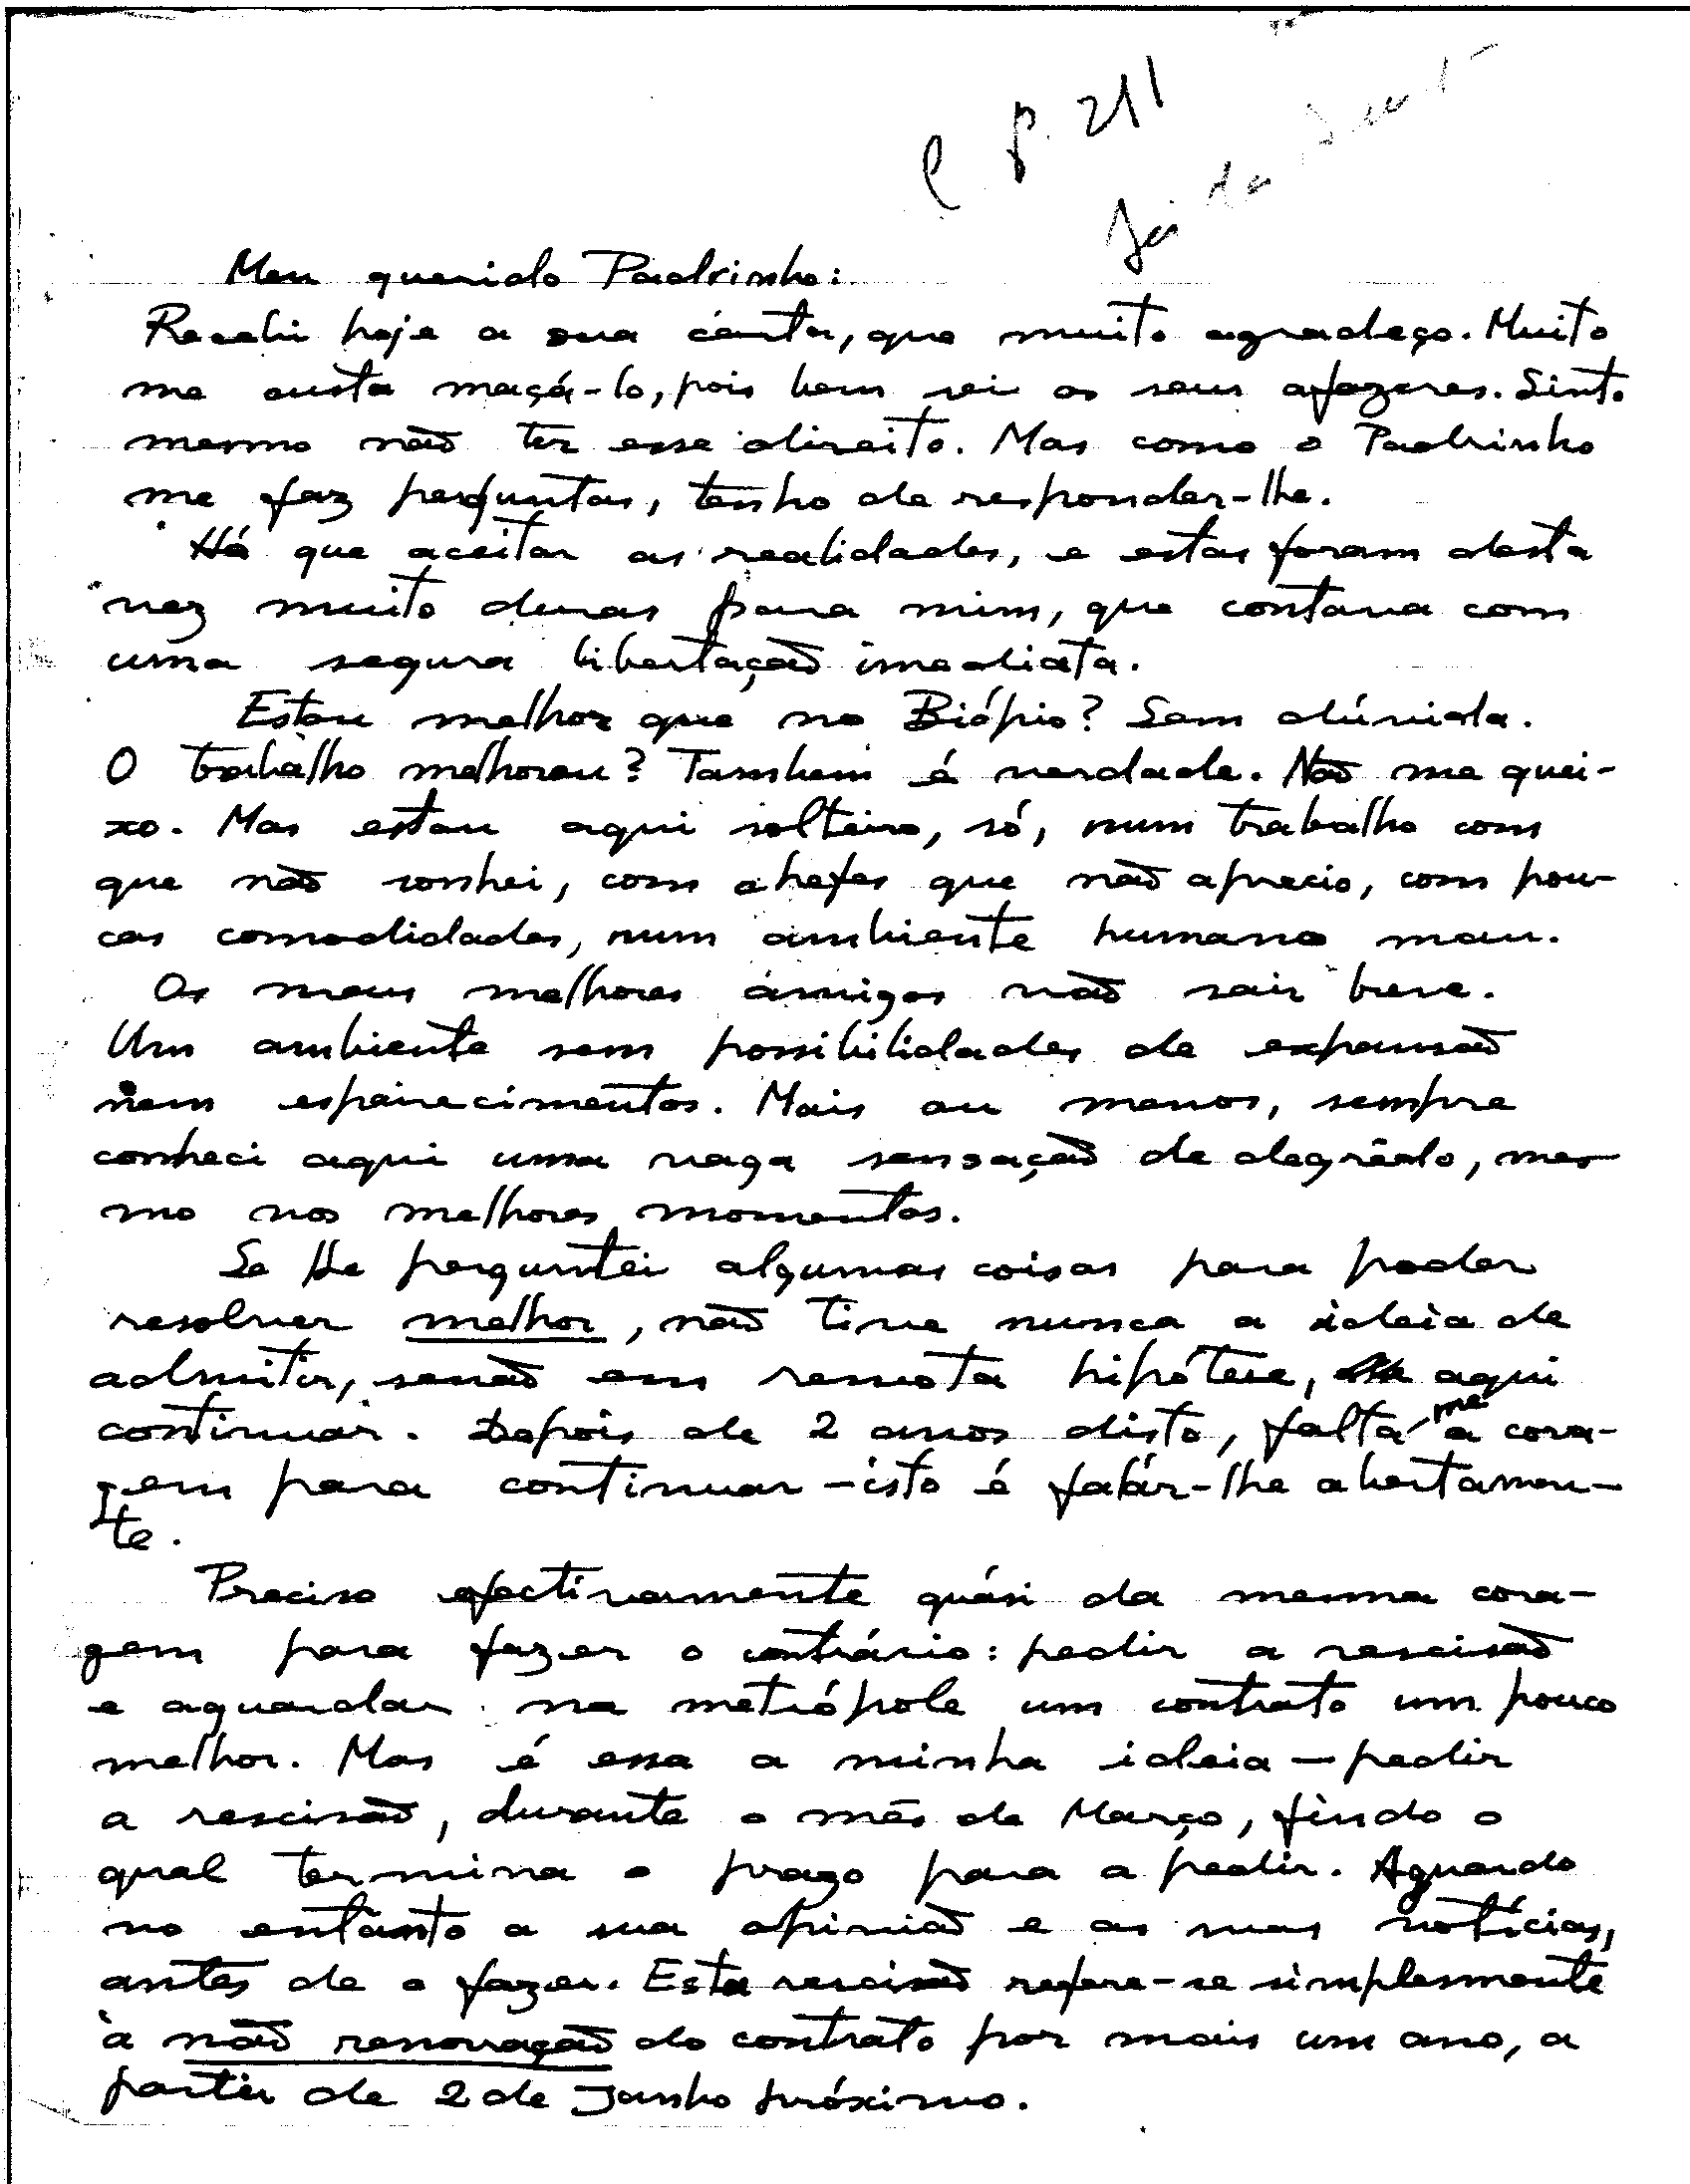 p. 211
Meu querido Padrinho:
Recebi hoje a sua cárta, que muito agradeço. Muito
me custa maçá-lo, pois bem sei os seus afazeres. Sinto
mesmo não ter esse direito. Mas como o Padrinho
me faz perguntas, tenho de responder-lhe.
Há que aceitar as realidades, e estas foram desta
vez muito duras para mim, que contava com
uma segura libertação imediata.
Estou melhor que no Biópio? Sem dúvida.
O trabalho melhorou? Tambem é verdade. Não me quei-
xo. Mas estou aqui solteiro, só, num trabalho com
que não sonhei, com chefes que não aprecio, com pou-
cas comodidades, num ambiente humano mau.
Os meus melhores amigos vão sair breve.
Um ambiente sem possibilidades de expansão
nem espairecimentos. Mais ou menos, sempre
conheci aqui uma vaga sensação de degrêdo, mes-
mo nos melhores momentos.
Se lhe perguntei algumas coisas para poder
resolver melhor, não tive nunca a ideia de
admitir, senão em remota hipótese, aqui
continuar. Depois de 2 anos disto, falta-me a cora-
gem para continuar - isto é falár-lhe abertamen-
te.
Preciso efectivamente quási da mesma cora-
gem para fazer o contrário: pedir a rescisão
e aguardar na metrópole um contrato um pouco
melhor. Mas é essa a minha ideia - pedir
a rescisão, durante o mês de Março, findo o
qual termina o prazo para a pedir. Aguardo
no entanto a sua opinião e as suas notícias,
antes de o fazer. Esta rescisão refere-se simplesmente
à não renovação do contrato por mais um ano, a
partir de 2 de Junho próximo.